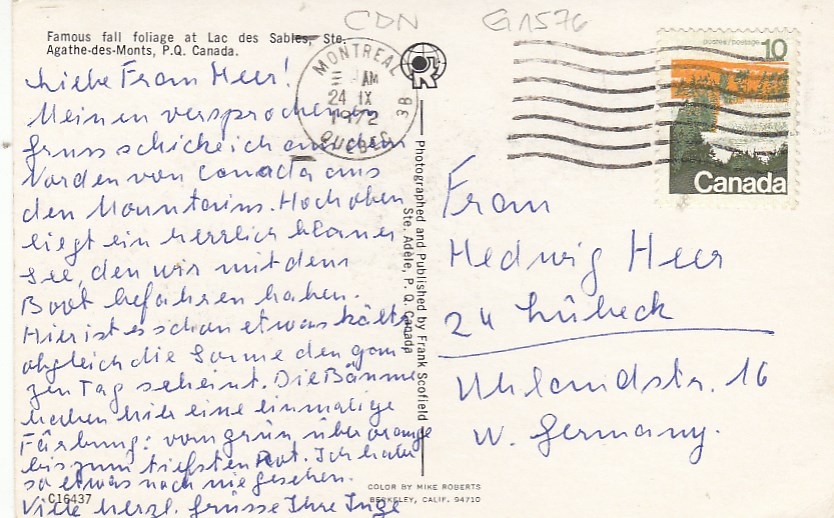 CDN G1576
Famous fall foliage at Lac des Sables, Ste.
Agathe-des-Monts, P.Q. Canada.
MONTREAL
AM
24 IX
1972
QUEBEC
3B
postes/postage 10
Canada
Liebe Frau Heer!
Meinen versprochenen
Gruss schicke ich aus dem
Norden von Canada aus
den Mountains. Hoch oben
liegt ein herrlich blauer
See, den wir mit dem
Boot befahren haben.
Hier ist es schon etwas kälter
obgleich die Sonne den gan
zen Tag scheint. Die Bäume
haben hier eine einmalige
Färbung: vom grün, über orange
bis zum tiefsten Rot. Ich habe
so etwas noch nie gesehen.
Viele herzl. Grüsse Ihre Inge
C16437
Photographed and Published by Frank Scofield
Ste. Adèle, P. Q. Canada
COLOR BY MIKE ROBERTS
BERKELEY, CALIF. 94710
Frau
Hedwig Heer
24 Lübeck
Uhlandstr. 16
W. Germany.